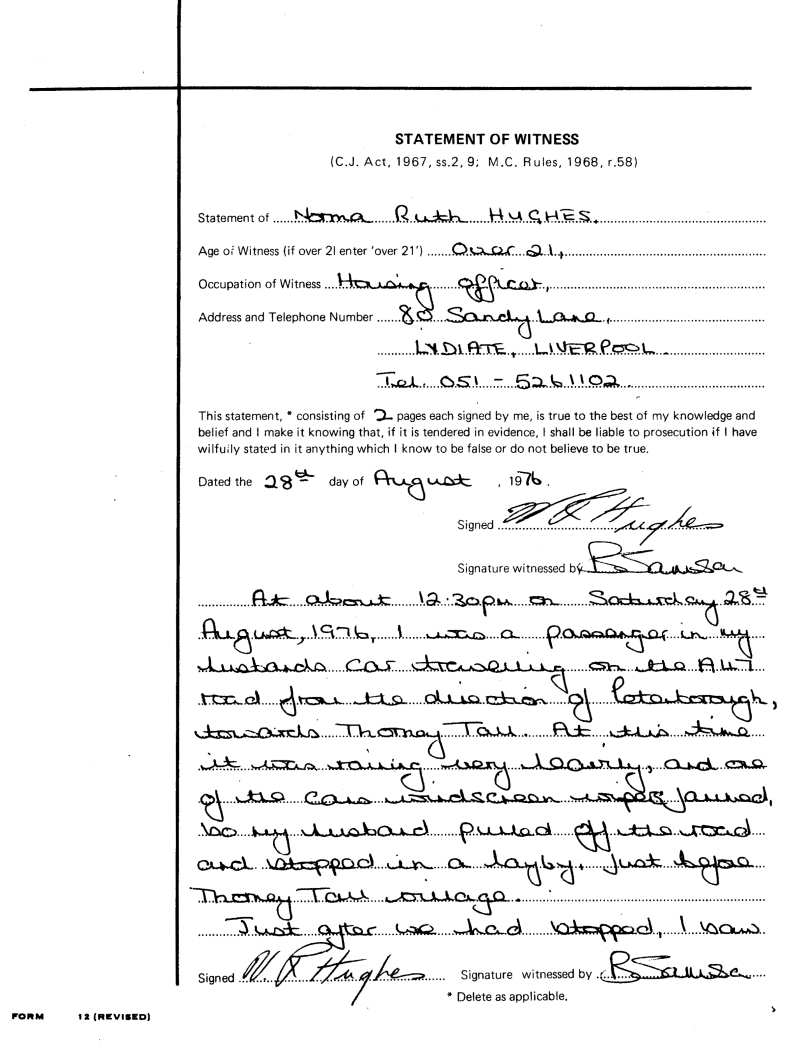 STATEMENT OF WITNESS
(C.J. Act, 1967, ss.2, 9; M.C. Rules, 1968, r.58)
Statement of Norma Ruth HUGHES.
Age of Witness (if over 21 enter 'over 21') Over 21,
Occupation of Witness Housing Officer,
Address and Telephone Number 80 Sandy Lane,
LYDIATE, LIVERPOOL
Tel. 051 - 5261102
This statement, * consisting of 2 pages each signed by me, is true to the best of my knowledge and
belief and I make it knowing that, if it is tendered in evidence, I shall be liable to prosecution if I have
wilfully stated in it anything which I know to be false or do not believe to be true.
Dated the 28th day of August , 1976.
Signed N R Hughes
Signature witnessed by
At about 12.30pm on Saturday 28th
August, 1976, I was a passenger in my
husbands car travelling on the A47
road from the direction of Peterborough,
towards Thorney Toll. At this time
it was raining very heavily, and one
of the cars windscreen wipers jammed,
so my husband pulled off the road
and stopped in a layby, just before
Thorney Toll village.
Just after we had stopped, I saw
Signed N. R Hughes Signature witnessed by
* Delete as applicable.
FORM 12 (REVISED)